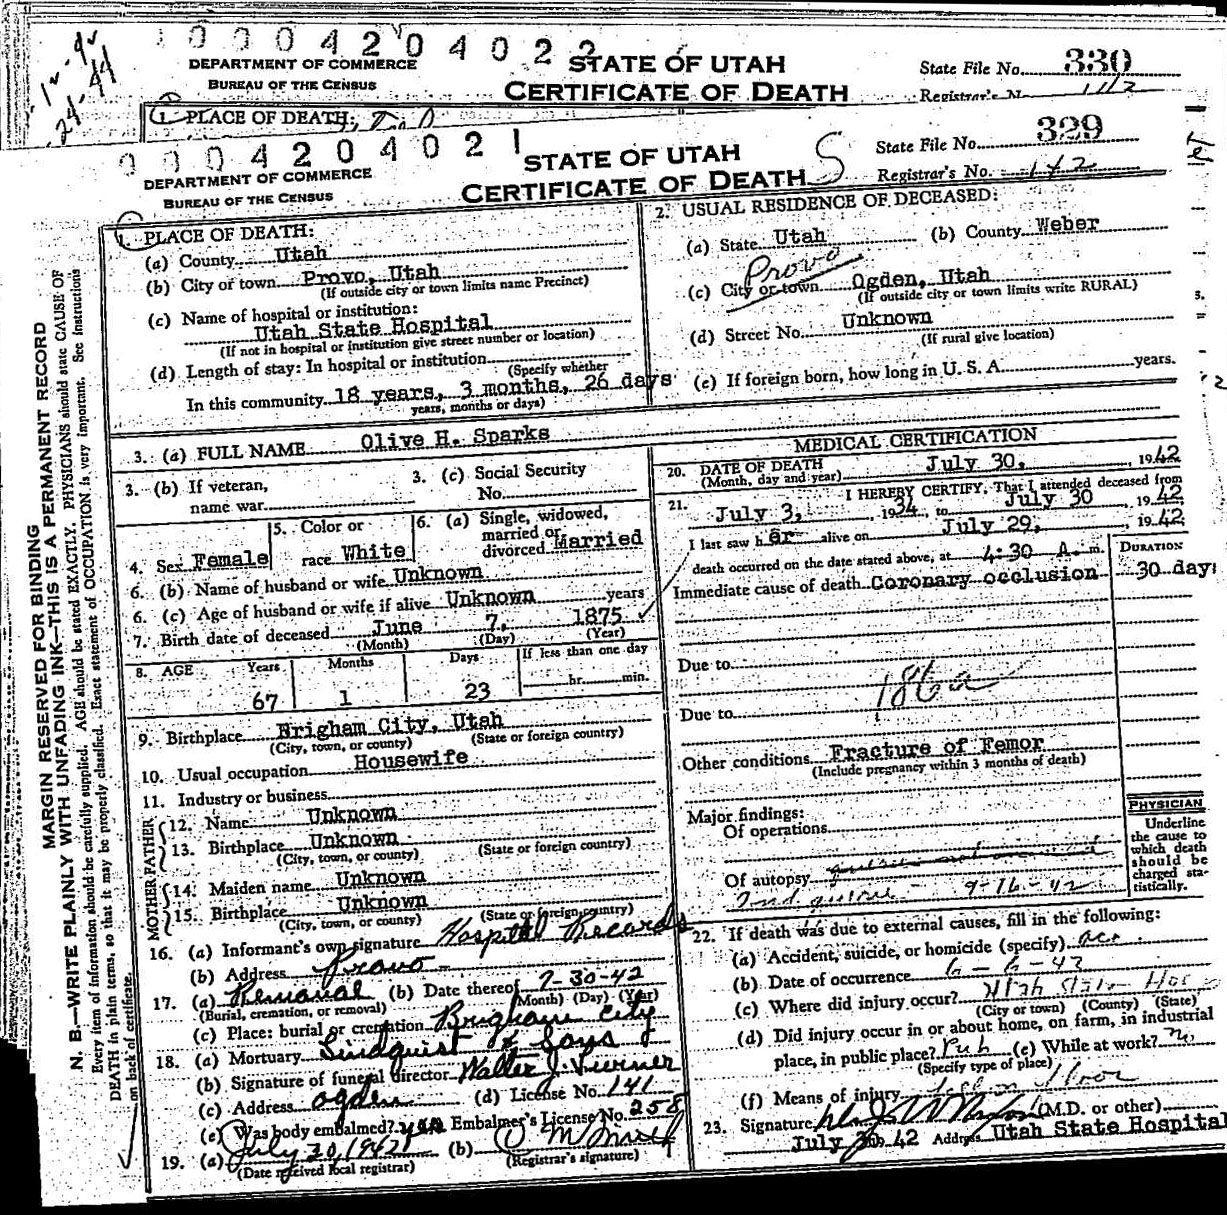 0 0 0 4 2 0 4 0 2 2
DEPARTMENT OF COMMERCE
BUREAU OF THE CENSUS
STATE OF UTAH
CERTIFICATE OF DEATH
State File No. 330
Registrar's N
1. PLACE OF DEATH:
0 0 0 4 2 0 4 0 2 1
DEPARTMENT OF COMMERCE
BUREAU OF THE CENSUS
STATE OF UTAH
CERTIFICATE OF DEATH
S
State File No. 329
Registrar's No. 142
MARGIN RESERVED FOR BINDING
N. B.—WRITE PLAINLY WITH UNFADING INK—THIS IS A PERMANENT RECORD
Every item of information should be carefully supplied. AGE should be stated EXACTLY. PHYSICIANS should state CAUSE OF
DEATH in plain terms, so that it may be properly classified. Exact statement of OCCUPATION is very important. See Instructions
on back of certificate.
1. PLACE OF DEATH:
(a) County Utah
(b) City or town Provo, Utah
(If outside city or town limits name Precinct)
(c) Name of hospital or institution:
Utah State Hospital
(If not in hospital or institution give street number or location)
(d) Length of stay: In hospital or institution
(Specify whether
In this community 18 years, 3 months, 26 days
years, months or days)
2. USUAL RESIDENCE OF DECEASED:
(a) State Utah (b) County Weber
Provo
(c) City or town Ogden, Utah
(If outside city or town limits write RURAL)
(d) Street No. Unknown
(If rural give location)
(e) If foreign born, how long in U. S. A. years.
3. (a) FULL NAME Olive H. Sparks
3. (b) If veteran,
name war
3. (c) Social Security
No.
4. Sex Female
5. Color or
race White
6. (a) Single, widowed,
married or
divorced Married
6. (b) Name of husband or wife Unknown
6. (c) Age of husband or wife if alive Unknown years
7. Birth date of deceased June 7, 1875
(Month) (Day) (Year)
8. AGE Years Months Days If less than one day
67 1 23 hr. min.
9. Birthplace Brigham City, Utah
(City, town, or county) (State or foreign country)
10. Usual occupation Housewife
11. Industry or business
FATHER
12. Name Unknown
13. Birthplace Unknown
(City, town, or county) (State or foreign country)
MOTHER
14. Maiden name Unknown
15. Birthplace Unknown
(City, town, or county) (State or foreign country)
16. (a) Informant's own signature Hospital Records
(b) Address Provo
17. (a) Removal (b) Date thereof 7-30-42
(Burial, cremation, or removal) (Month) (Day) (Year)
(c) Place: burial or cremation Brigham City
18. (a) Mortuary Lindquist & Sons
(b) Signature of funeral director Walter J. Turner
(c) Address Ogden (d) License No. 141
(e) Was body embalmed? yes Embalmer's License No. 258
19. (a) July 30, 1942 (b)
(Date received local registrar) (Registrar's signature)
MEDICAL CERTIFICATION
20. DATE OF DEATH July 30, 1942
(Month, day and year)
21. I HEREBY CERTIFY, That I attended deceased from
July 3, 1934, to July 30 1942
I last saw her alive on July 29, 1942
death occurred on the date stated above, at 4:30 A. m.
DURATION
Immediate cause of death Coronary occlusion 30 days
Due to
186a
Due to
Other conditions Fracture of Femor
(Include pregnancy within 3 months of death)
Major findings:
Of operations
Of autopsy
9-16-42
PHYSICIAN
Underline
the cause to
which death
should be
charged sta-
tistically.
22. If death was due to external causes, fill in the following:
(a) Accident, suicide, or homicide (specify) acc
(b) Date of occurrence 6-6-42
(c) Where did injury occur? Utah State Hos
(City or town) (County) (State)
(d) Did injury occur in or about home, on farm, in industrial
place, in public place? Pub (e) While at work? no
(Specify type of place)
(f) Means of injury floor
23. Signature (M.D. or other)
July 30 42 Address Utah State Hospital